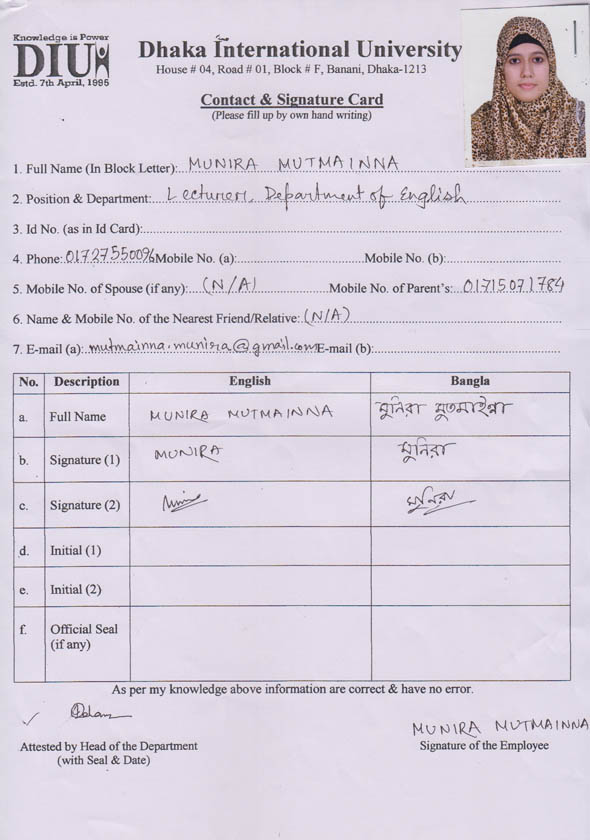 Knowledge is Power
DIU
Estd. 7th April, 1995
Dhaka International University
House # 04, Road # 01, Block # F, Banani, Dhaka-1213
Contact & Signature Card
(Please fill up by own hand writing)
1. Full Name (In Block Letter): MUNIRA MUTMAINNA
2. Position & Department: Lecturer, Department of English
3. Id No. (as in Id Card):
4. Phone: 01727550096 Mobile No. (a): Mobile No. (b):
5. Mobile No. of Spouse (if any): (N/A) Mobile No. of Parent's: 01715071784
6. Name & Mobile No. of the Nearest Friend/Relative: (N/A)
7. E-mail (a): mutmainna.munira@gmail.com E-mail (b):
No. Description English Bangla
a. Full Name MUNIRA MUTMAINNA মুনিরা মুতমাইন্না
b. Signature (1) MUNIRA মুনিরা
c. Signature (2) মুনিরা
d. Initial (1)
e. Initial (2)
f. Official Seal
(if any)
As per my knowledge above information are correct & have no error.
MUNIRA MUTMAINNA
Attested by Head of the Department Signature of the Employee
(with Seal & Date)